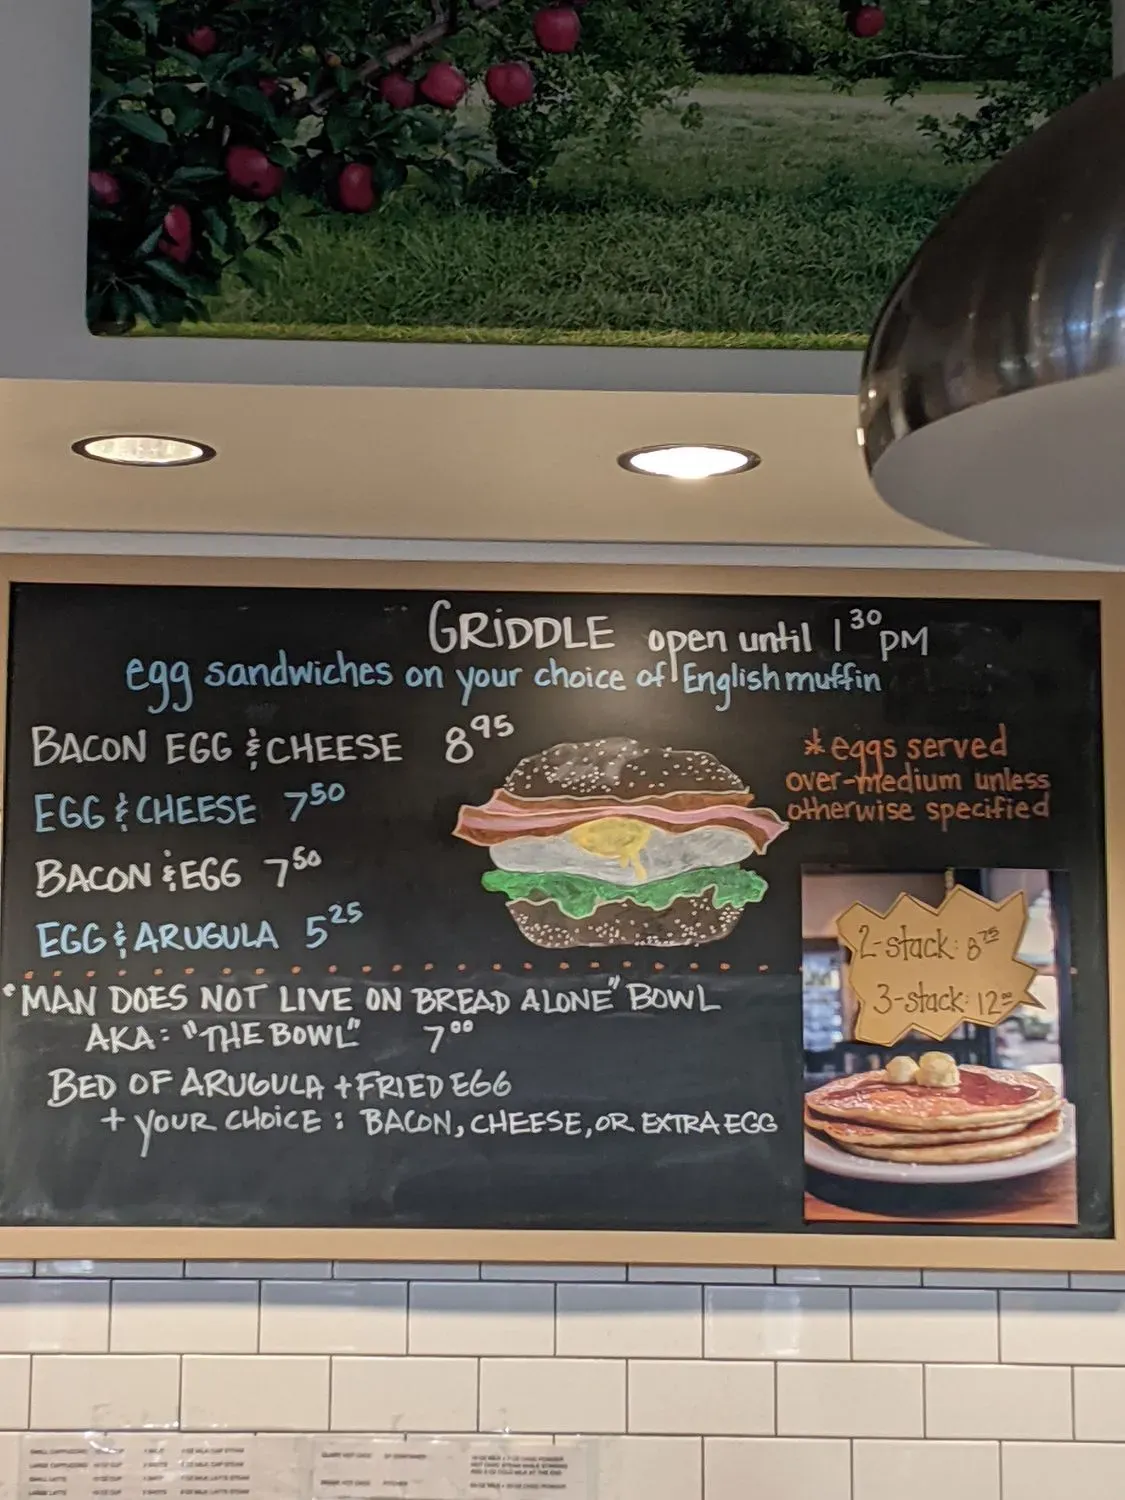 GRiDDLE open until 1 30 PM
egg sandwiches on your choice of English muffin
BACON EGG & CHEESE 8 95
EGG & CHEESE 7 50
BACON & EGG 7 50
EGG & ARUGULA 5 25
* eggs served
over-medium unless
otherwise specified
2-stack: 8 75
3-stack: 12 00
"MAN DOES NOT LIVE ON BREAD ALONE" BOWL
AKA: "THE BOWL" 7 00
BED OF ARUGULA + FRIED EGG
+ YOUR CHOICE: BACON, CHEESE, OR EXTRA EGG